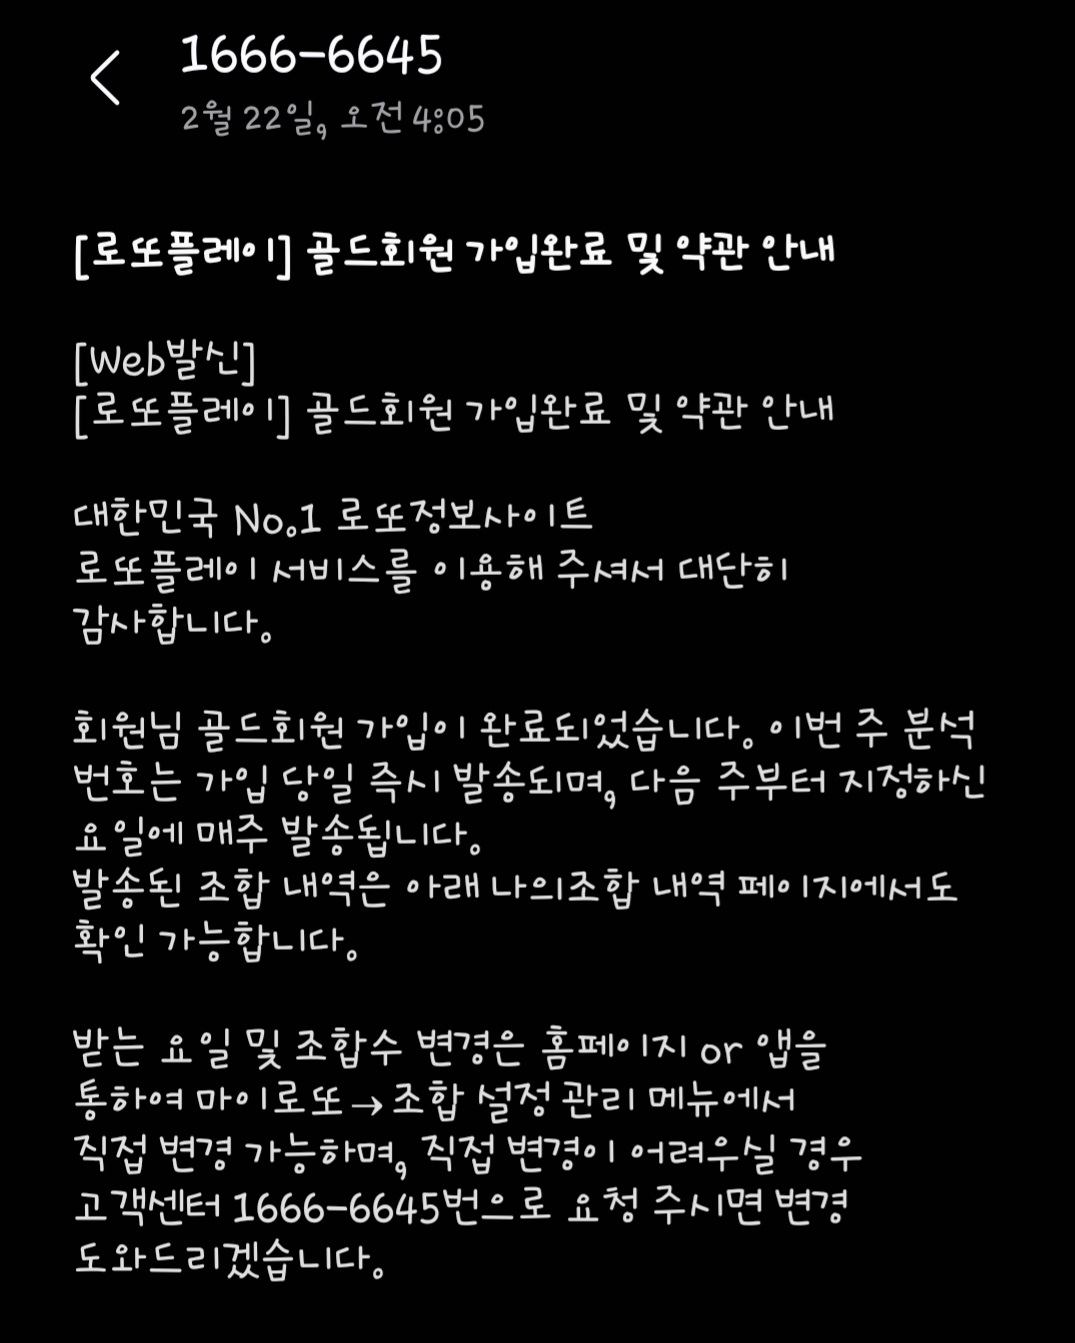 1666-6645
2월 22일, 오전 4:05
[로또플레이] 골드회원 가입완료 및 약관 안내
[Web발신]
[로또플레이] 골드회원 가입완료 및 약관 안내
대한민국 No.1 로또정보사이트
로또플레이 서비스를 이용해 주셔서 대단히
감사합니다.
회원님 골드회원 가입이 완료되었습니다. 이번 주 분석
번호는 가입 당일 즉시 발송되며, 다음 주부터 지정하신
요일에 매주 발송됩니다.
발송된 조합 내역은 아래 나의조합 내역 페이지에서도
확인 가능합니다.
받는 요일 및 조합수 변경은 홈페이지 or 앱을
통하여 마이로또→조합 설정 관리 메뉴에서
직접 변경 가능하며, 직접 변경이 어려우실 경우
고객센터 1666-6645번으로 요청 주시면 변경
도와드리겠습니다.